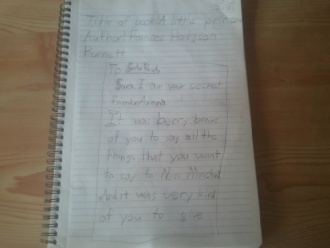 Title of book: A little princess
Author: Frances Hodgson
Burnett
To Sara
Sara I am your secret
It was berry brave
of you to say all the
things that you want
to say to Miss Minchin
And it was very kind
of you to